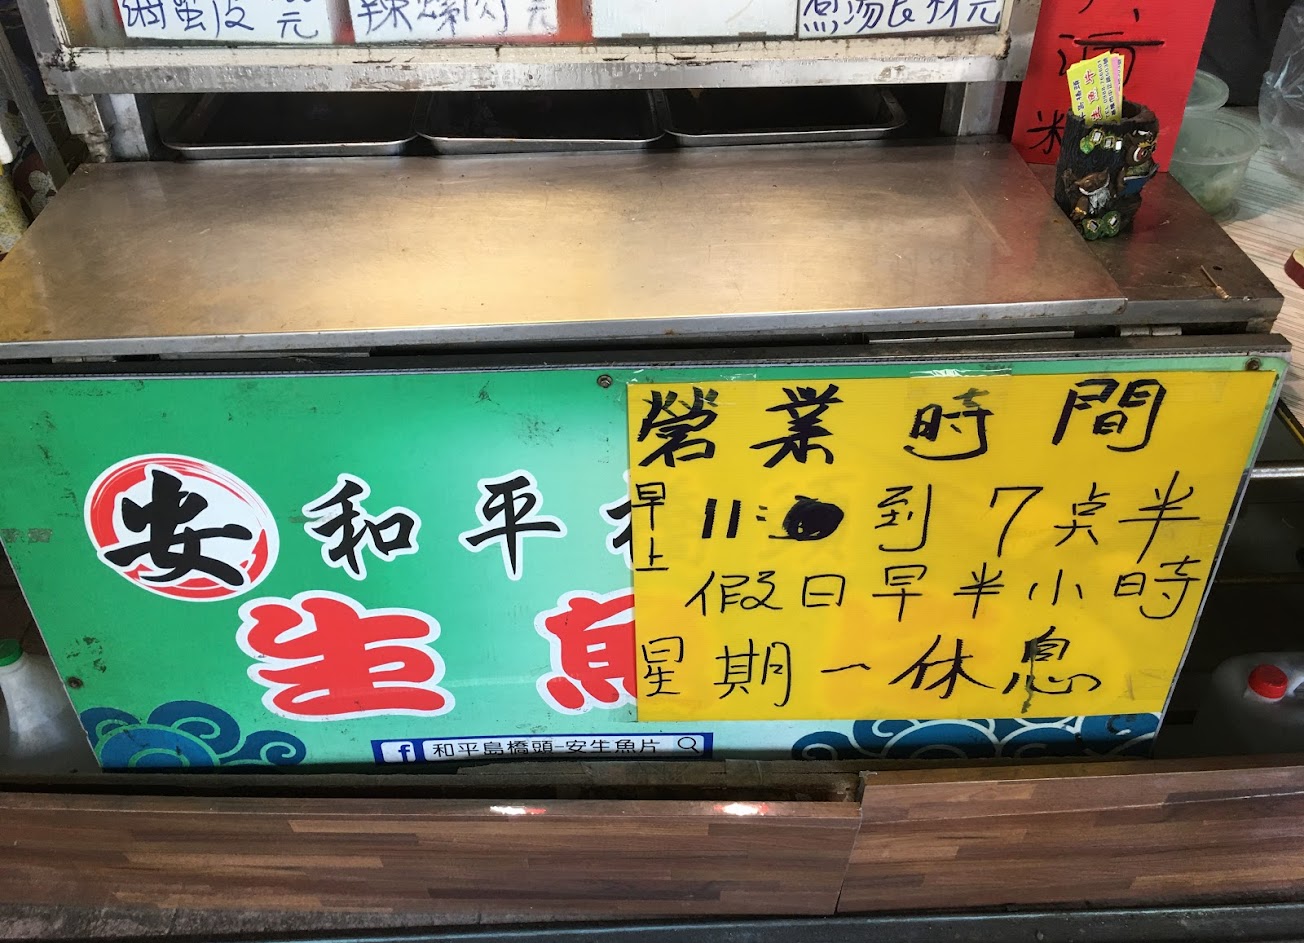 元
辣螺肉 元
元
米
營業時間
早上 11: 到7点半
假日早半小時
星期一休息
安 和平
生魚
f 和平島橋頭-安生魚片